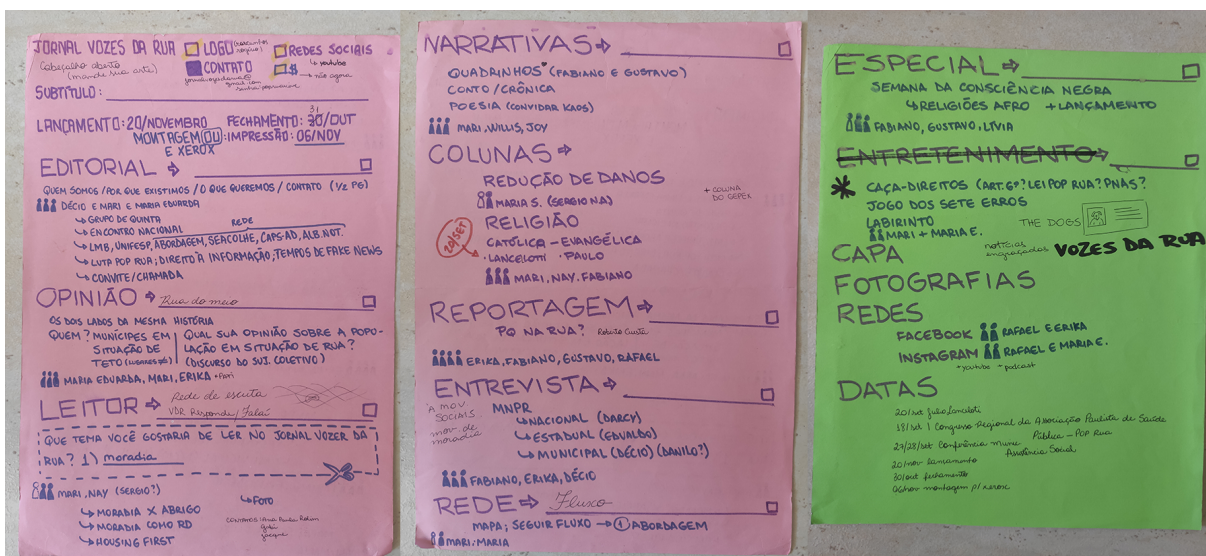 JORNAL VOZES DA RUA
LOGO
REDES SOCIAIS
Cabeçalho aberto
(mande sua arte)
CONTATO
↳ youtube
$
↳ não agora
SUBTÍTULO:
LANÇAMENTO: 20/NOVEMBRO FECHAMENTO: 30/OUT
31
MONTAGEM OU IMPRESSÃO: 06/NOV
E XEROX
EDITORIAL →
QUEM SOMOS / POR QUE EXISTIMOS / O QUE QUEREMOS / CONTATO (1/2 PG)
DÉCIO E MARI E MARIA EDUARDA
↳ GRUPO DE QUINTA
↳ ENCONTRO NACIONAL
REDE
↳ LMB, UNIFESP, ABORDAGEM, SEACOLHE, CAPS-AD, ALB. NOT.
↳ LUTA POP RUA; DIREITO À INFORMAÇÃO; TEMPOS DE FAKE NEWS
↳ CONVITE/CHAMADA
OPINIÃO → Rua do meio
OS DOIS LADOS DA MESMA HISTÓRIA
QUEM? MUNÍCIPES EM
SITUAÇÃO DE
TETO (LUGARES ≠)
QUAL SUA OPINIÃO SOBRE A POPU-
LAÇÃO EM SITUAÇÃO DE RUA?
(DISCURSO DO SUJ. COLETIVO)
MARIA EDUARDA, MARI, ERIKA
LEITOR → Rede de escuta
VDR Responde/
QUE TEMA VOCÊ GOSTARIA DE LER NO JORNAL VOZER DA
RUA? 1) moradia
MARI, NAY (SERGIO?)
↳ MORADIA X ABRIGO
↳ MORADIA COMO RD
↳ HOUSING FIRST
↳ FOTO
CONTATOS: Ana Paula
NARRATIVAS →
QUADRINHOS (FABIANO E GUSTAVO)
CONTO/CRÔNICA
POESIA (CONVIDAR KAOS)
MARI, WILLIS, JOY
COLUNAS →
REDUÇÃO DE DANOS
MARIA S. (SERGIO NA)
+ COLUNA
DO GEPEX
RELIGIÃO
20/SET
CATÓLICA - EVANGÉLICA
· LANCELOTTI · PAULO
MARI, NAY, FABIANO
REPORTAGEM →
PQ NA RUA? Roberto
ERIKA, FABIANO, GUSTAVO, RAFAEL
ENTREVISTA →
MOV
SOCIAIS
mov. de
moradia
MNPR
↳ NACIONAL (DARCY)
↳ ESTADUAL (EDVALDO)
↳ MUNICIPAL (DÉCIO) (DANILO?)
FABIANO, ERIKA, DÉCIO
REDE → Fluxo
MAPA; SEGUIR FLUXO → 1 ABORDAGEM
MARI, MARIA
ESPECIAL →
SEMANA DA CONSCIÊNCIA NEGRA
↳ RELIGIÕES AFRO + LANÇAMENTO
FABIANO, GUSTAVO, LÍVIA
ENTRETENIMENTO →
* CAÇA-DIREITOS (ART. 6º? LEI POP RUA? PNAS?
JOGO DOS SETE ERROS
LABIRINTO
THE DOGS
MARI + MARIA E.
CAPA
notícias
engraçadas
VOZES DA RUA
FOTOGRAFIAS
REDES
FACEBOOK RAFAEL E ERIKA
INSTAGRAM RAFAEL E MARIA E.
+ youtube + podcast
DATAS
20/set Julio Lancelotti
18/set I Congresso Regional da Associação Paulista de Saúde
Pública - POP Rua
27/28/set Conferência Munic
Assistência Social
20/nov lançamento
30/out fechamento
06/nov montagem p/ xerox